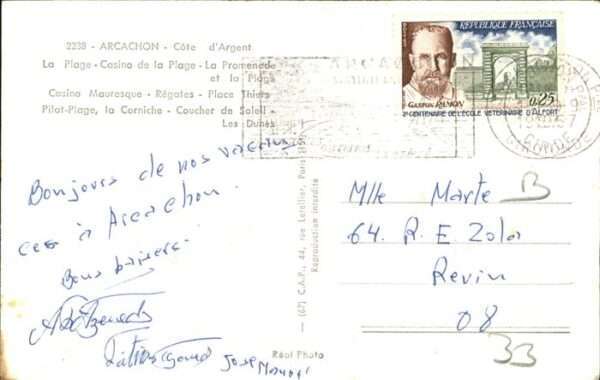 2238 - ARCACHON - Côte d'Argent
La Plage - Casino de la Plage - La Promenade
et la Plage
Casino Mauresque - Régates - Place Thiers
Pilat-Plage, la Corniche - Coucher de Soleil -
Les Dunes
REPUBLIQUE FRANÇAISE
GASTON RAMON
0,25
2e CENTENAIRE DE L'ÉCOLE VÉTÉRINAIRE D'ALFORT
GIRONDE
Bonjours de nos vacan
ces à Arcachon.
Bons baisers.
José
Réal Photo
— (67) C.A.P., 44, rue Letellier, Paris (15e)
Reproduction interdite
Mlle Marte B
64. R. E. Zola
Revin
08
33